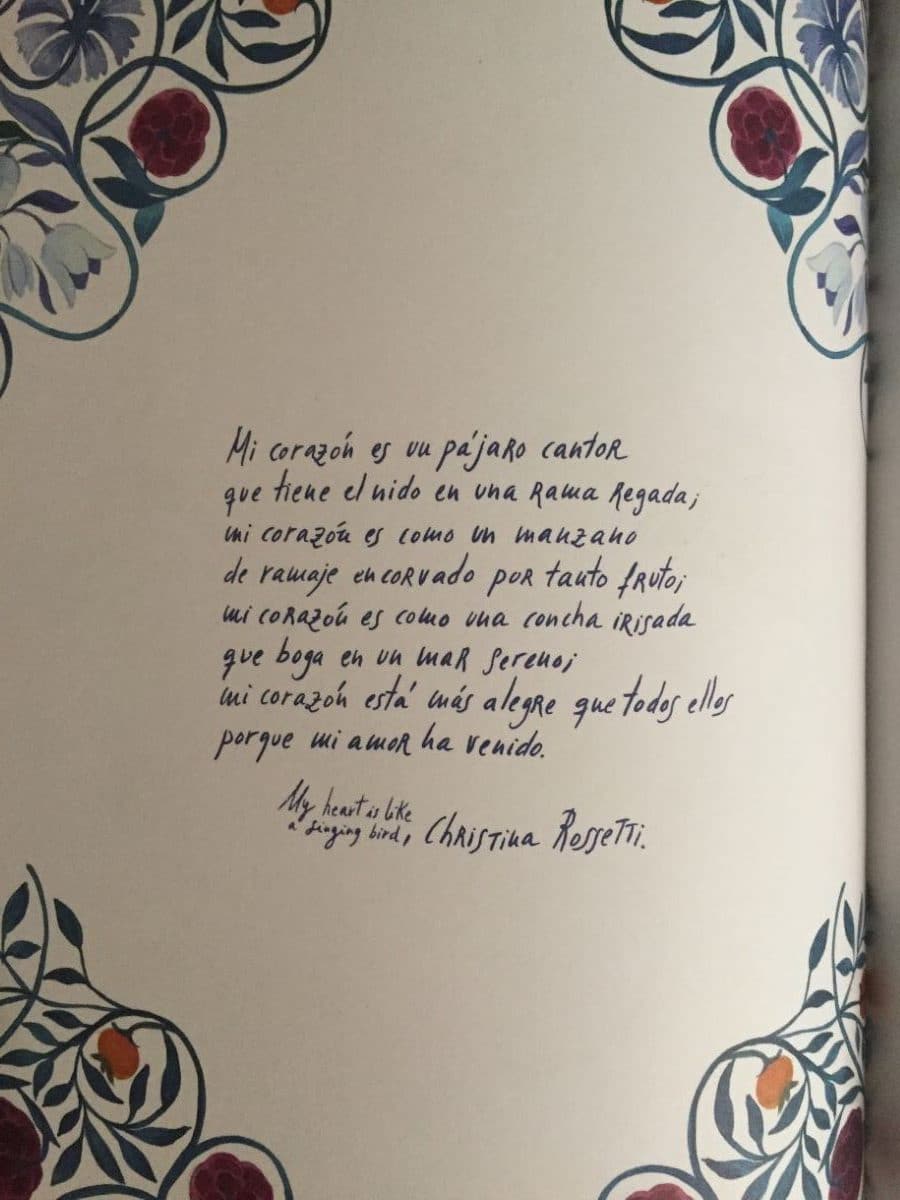 Mi corazón es un pájaro cantor
que tiene el nido en una rama regada;
mi corazón es como un manzano
de ramaje encorvado por tanto fruto;
mi corazón es como una concha irisada
que boga en un mar sereno;
mi corazón está más alegre que todos ellos
porque mi amor ha venido.
My heart is like
a singing bird, Christina Rossetti.